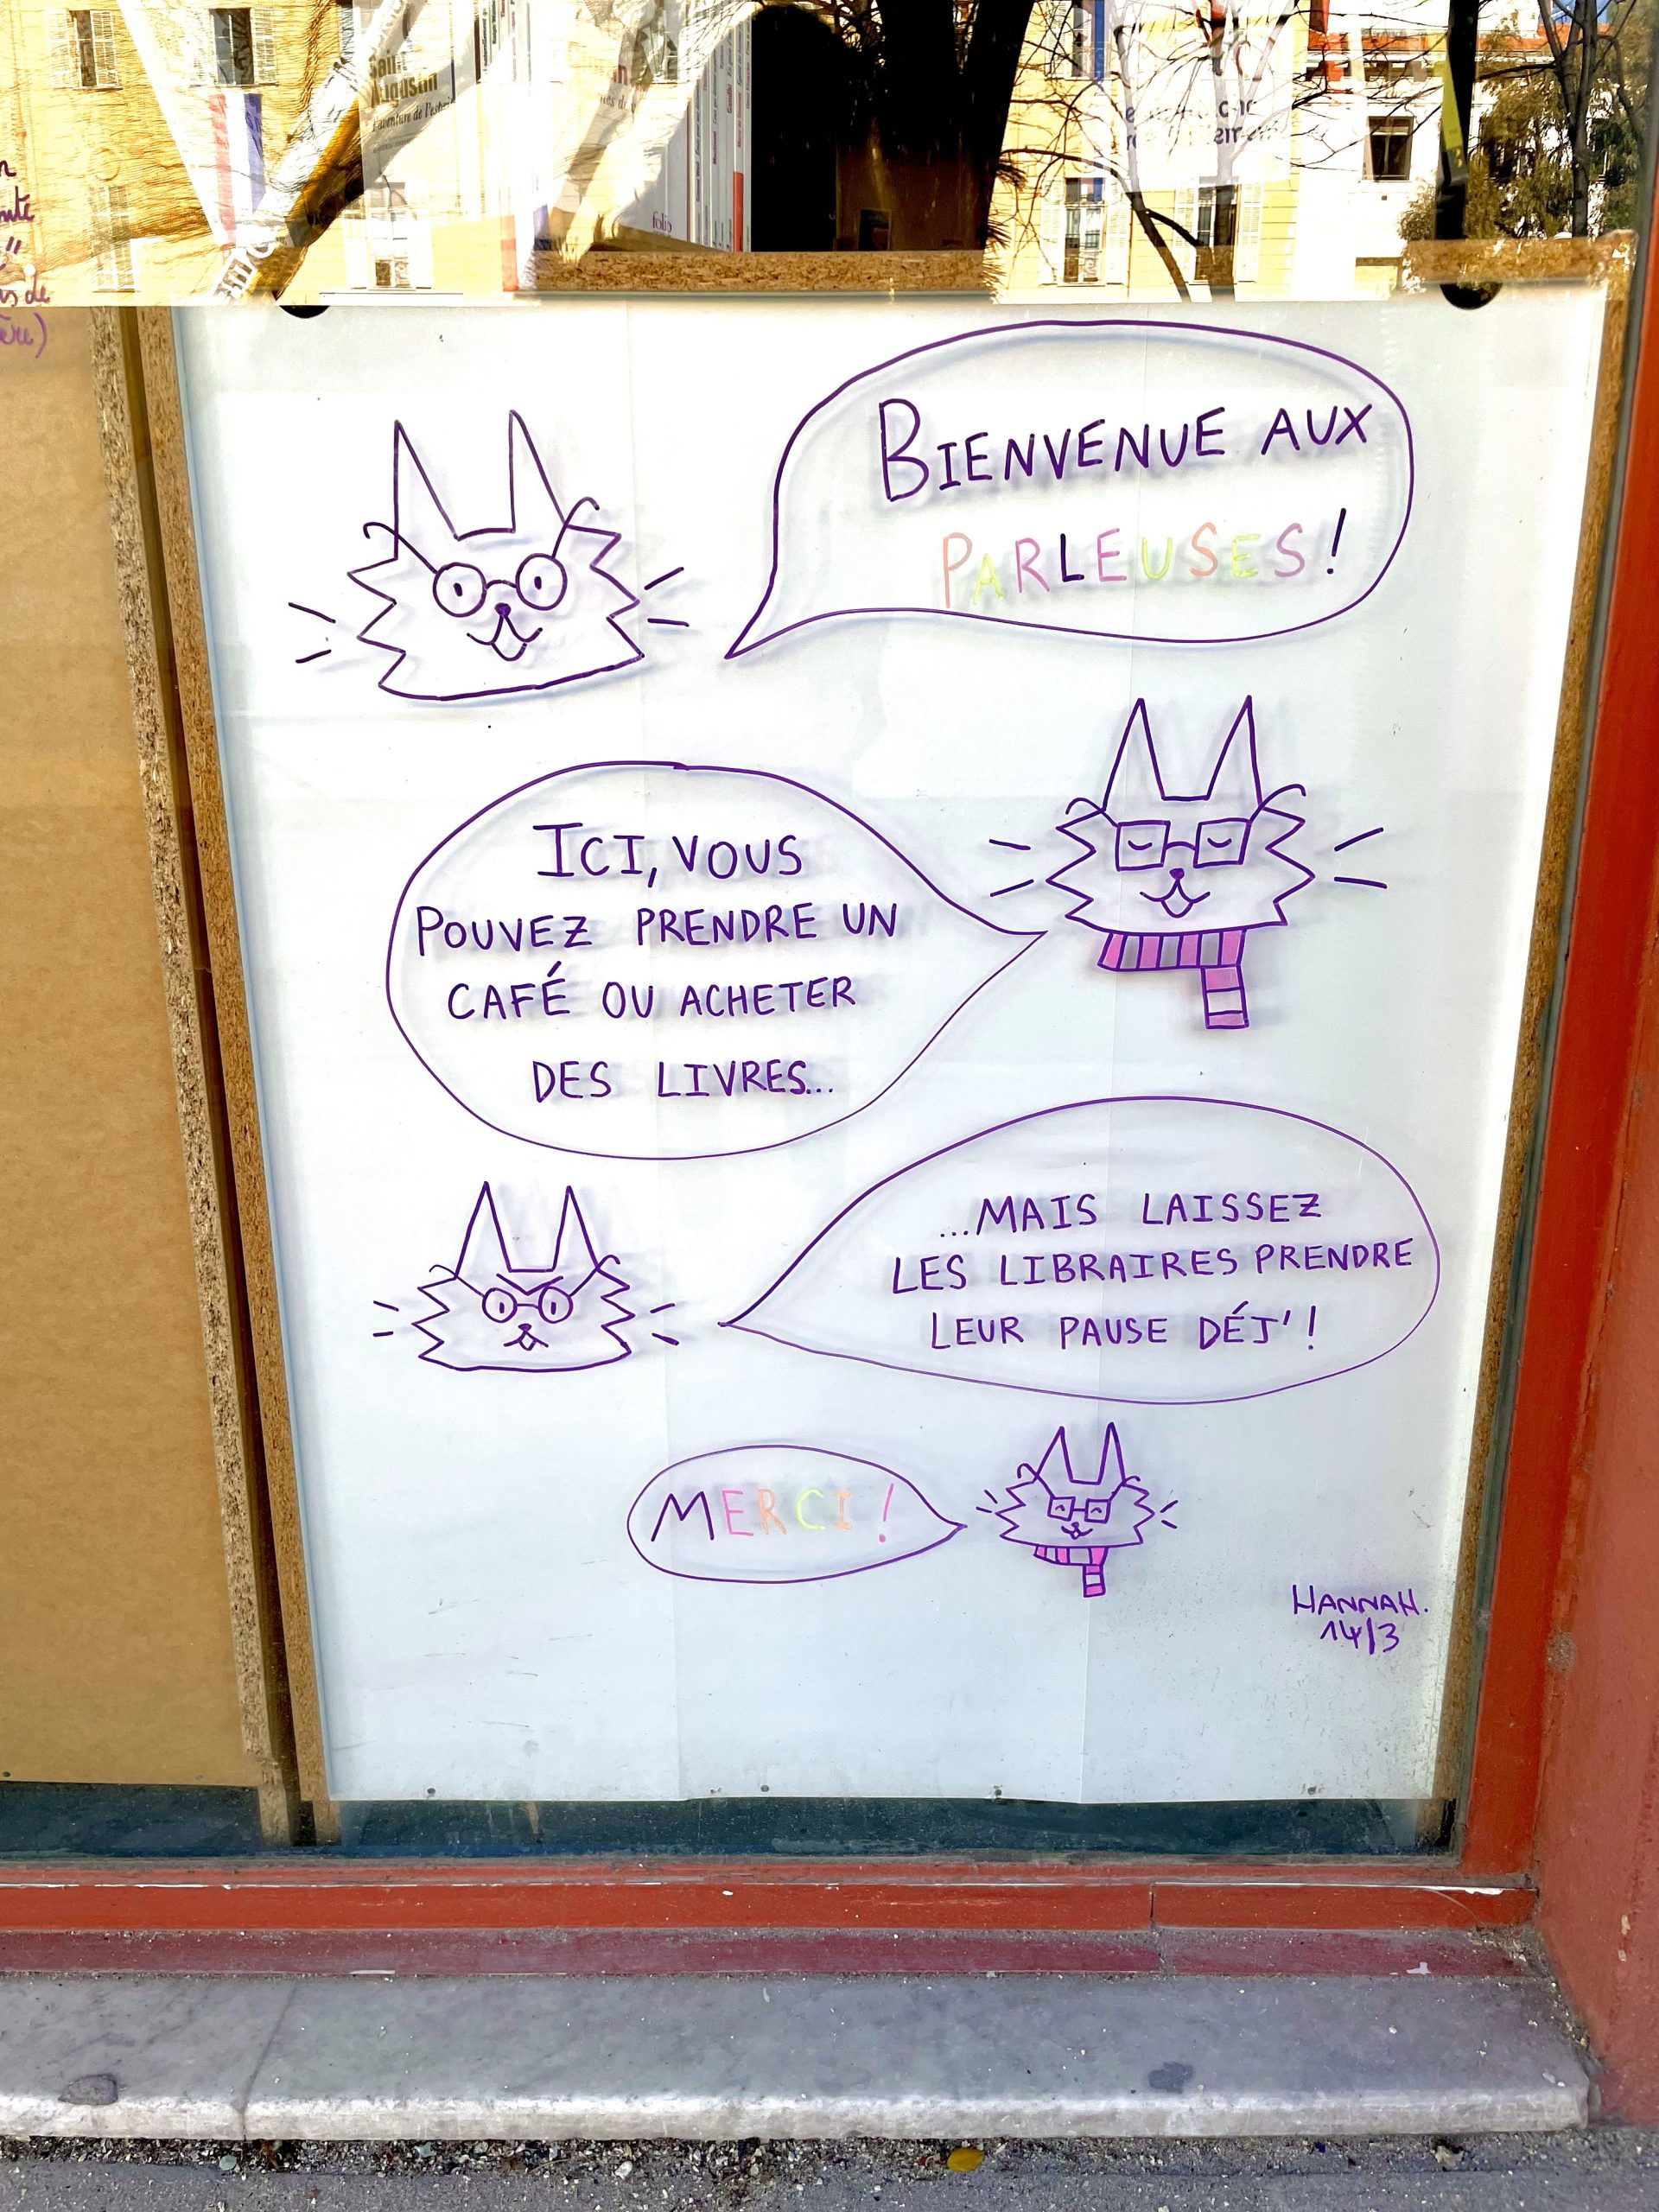 Saint
Augustin
l'aventure de l'esprit
folio
BIENVENUE AUX
PARLEUSES!
ICI, VOUS
POUVEZ PRENDRE UN
CAFÉ OU ACHETER
DES LIVRES...
...MAIS LAISSEZ
LES LIBRAIRES PRENDRE
LEUR PAUSE DÉJ'!
MERCI!
HANNAH.
14/3